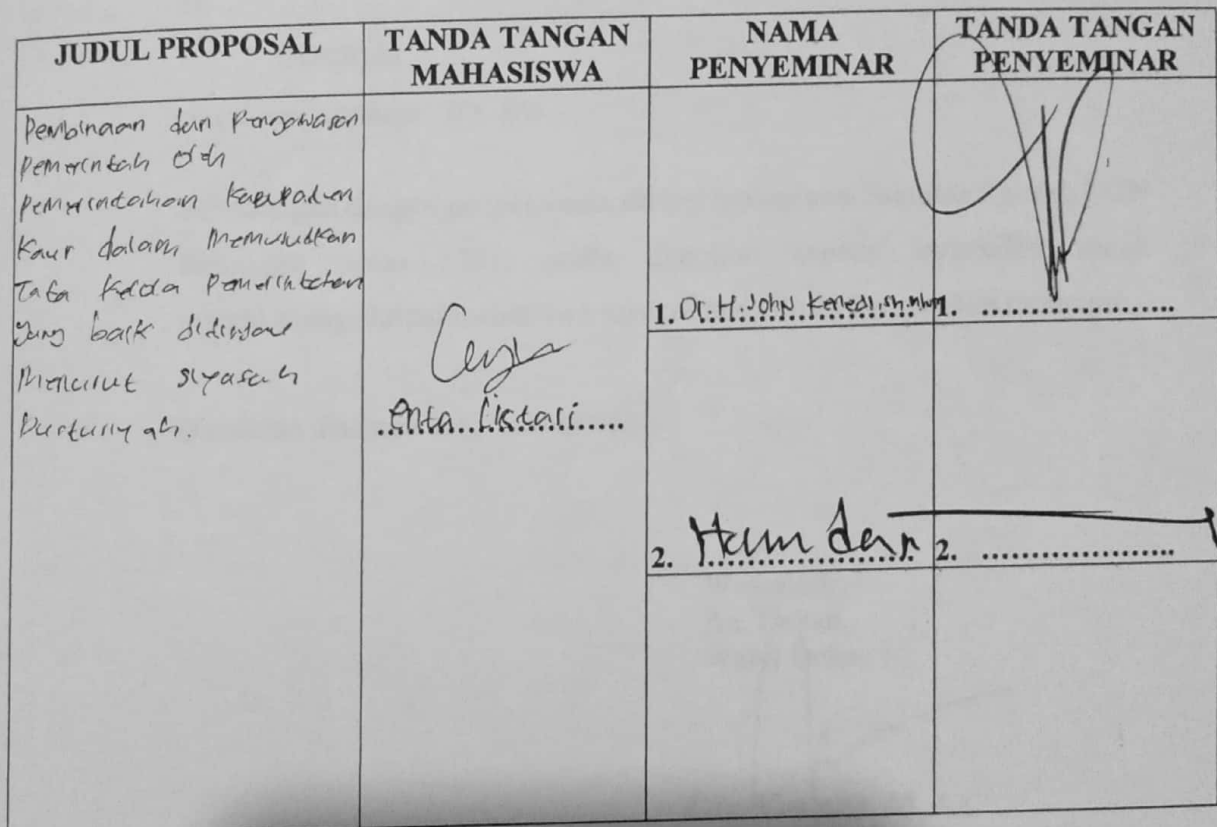 JUDUL PROPOSAL
TANDA TANGAN
MAHASISWA
NAMA
PENYEMINAR
TANDA TANGAN
PENYEMINAR
Pembinaan dan Pengawasan
Pemerintah Oleh
Pemerintahan Kabupaten
Kaur dalam Memwudkan
Tata Kelola Pemerintahan
yang baik di
Menurut siyasah
Dusturiyah.
Anta Listari
1. Dr. H. John Kenedi, SH. MHum
1. ....................
2. Hamdan
2. ....................